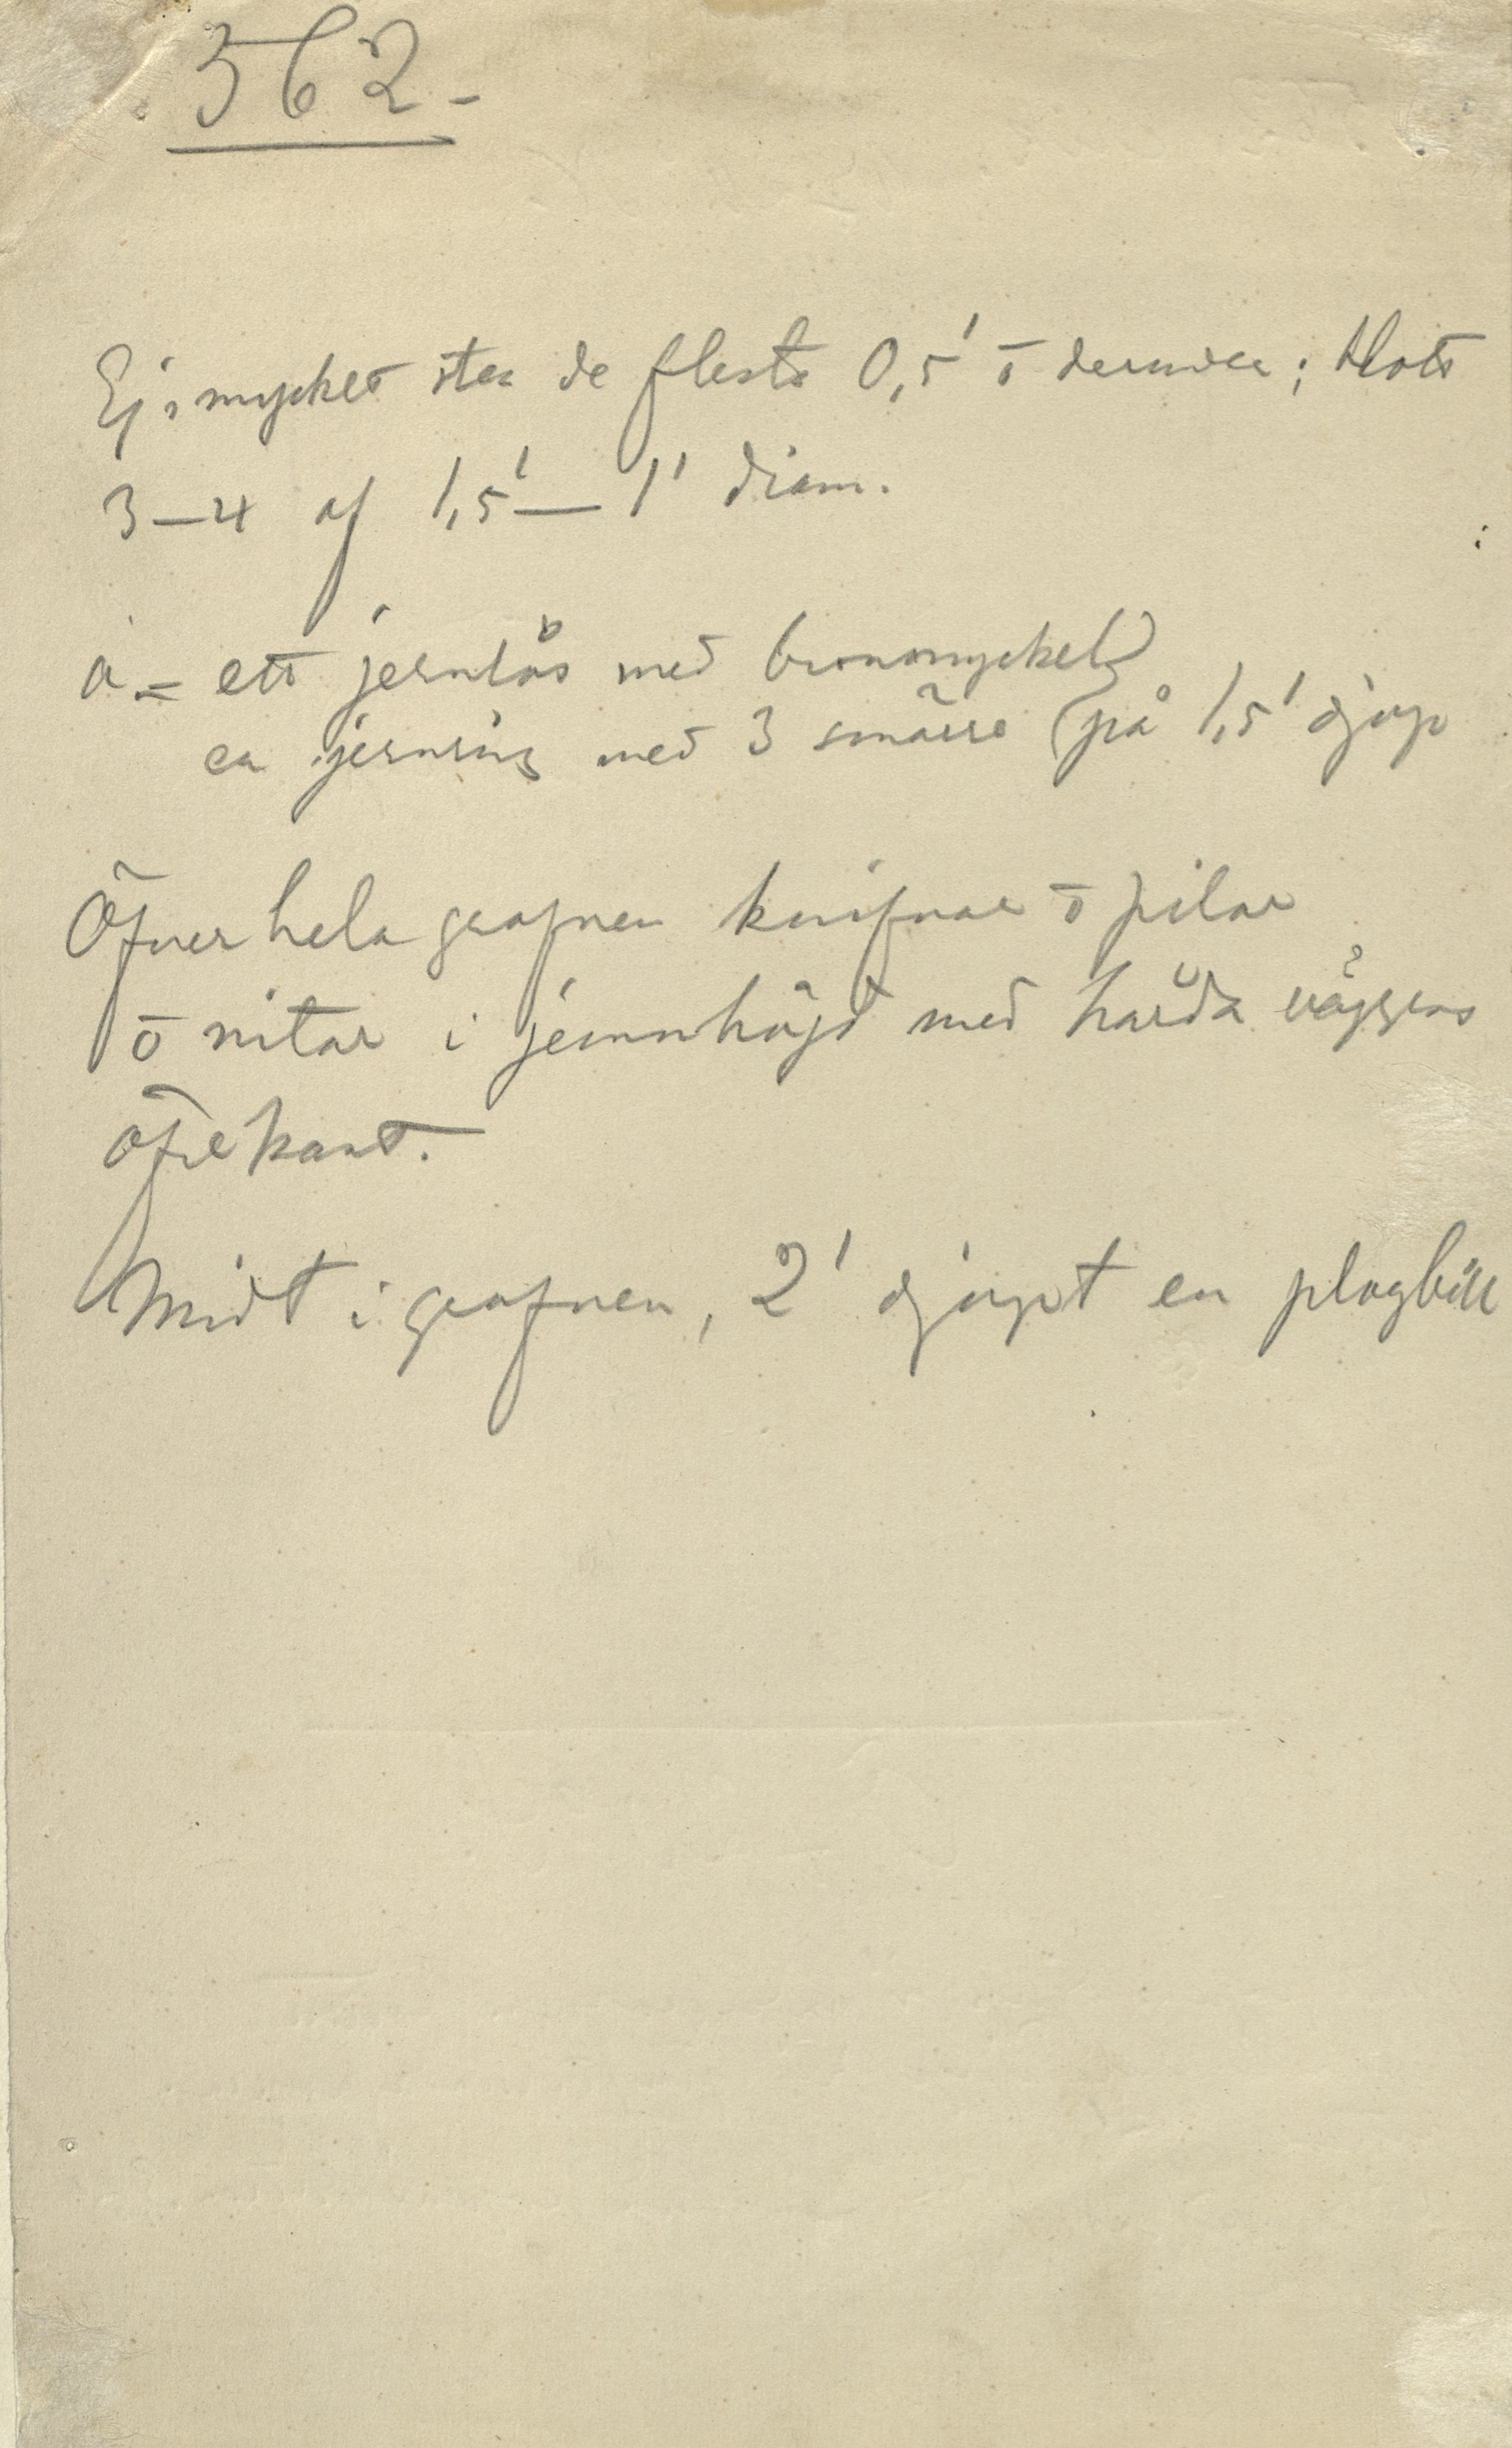 562.
Ej mycket sten de flesta 0,5' o derunder; blott
3–4 af 1,5'— 1' diam.
a = ett jernlås med bronsnyckel
en jernring med 3 smärre (på 1,5' djup
Öfver hela grafven knifvar o pilar
o nitar i jemnhöjd med hårda väggens
öfre kant.
Midt i grafven, 2' djupt en plogbill